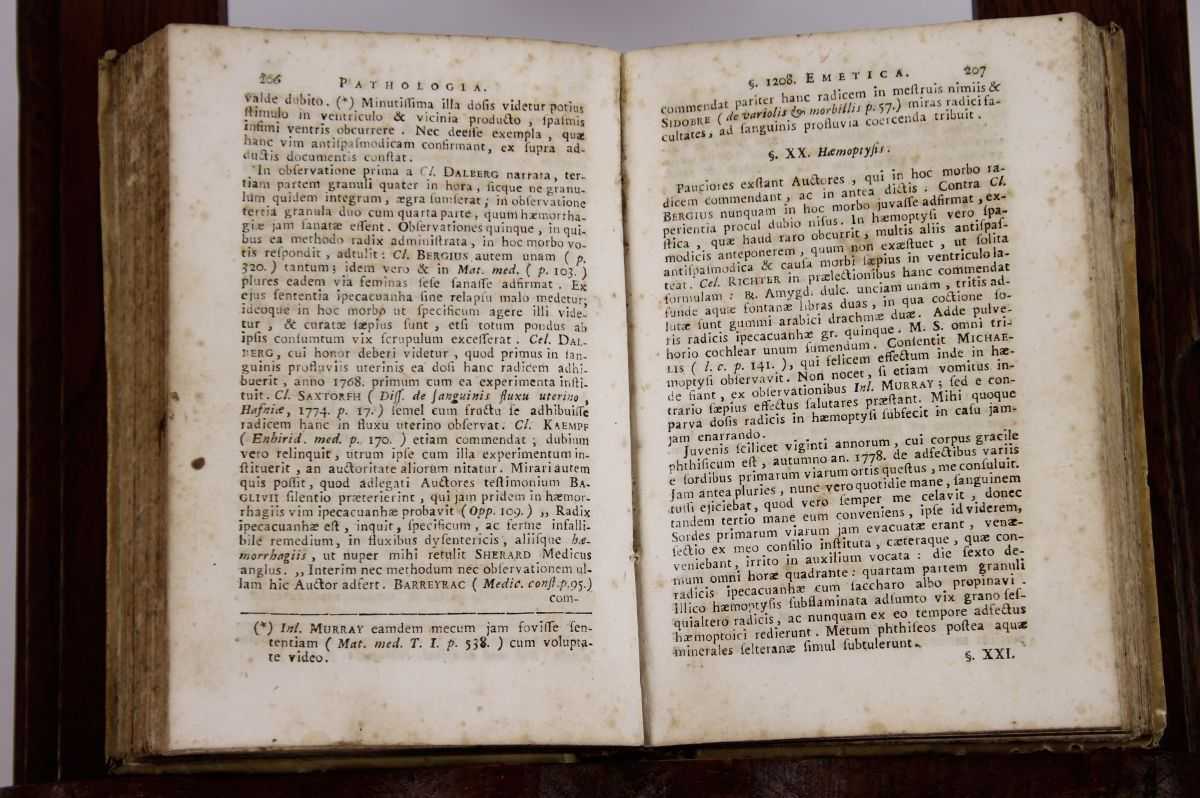 206 PATHOLOGIA.
valde dubito. (*) Minutissima illa dosis videtur potius
stimulo in ventriculo & vicinia producto, spasmis
infimi ventris obcurrere. Nec deesse exempla, quæ
hanc vim antispasmodicam confirmant, ex supra ad-
ductis documentis constat.
In observatione prima a Cl. DALBERG narrata, ter-
tiam partem granuli quater in hora, sicque ne granu-
lum quidem integrum, ægra sumserat; in observatione
tertia granula duo cum quarta parte, quum hæmorrha-
giæ jam sanatæ essent. Observationes quinque, in qui-
bus ea methodo radix administrata, in hoc morbo vo-
tis respondit, adtulit: Cl. BERGIUS autem unam (p.
320.) tantum; idem vero & in Mat. med. (p. 103.)
plures eadem via feminas sese sanasse adfirmat. Ex
ejus sententia ipecacuanha sine relapsu malo medetur;
ideoque in hoc morbo ut specificum agere illi vide-
tur, & curatæ sæpius sunt, etsi totum pondus ab
ipsis consumtum vix scrupulum excesserat. Cel. DAL-
BERG, cui honor deberi videtur, quod primus in san-
guinis profluviis uterinis ea dosi hanc radicem adhi-
buerit, anno 1768. primum cum ea experimenta insti-
tuit. Cl. SAXTORFH (Diss. de sanguinis fluxu uterino,
Hafniæ, 1774. p. 17.) semel cum fructu se adhibuisse
radicem hanc in fluxu uterino observat. Cl. KAEMPF
(Enhirid. med. p. 170.) etiam commendat; dubium
vero relinquit, utrum ipse cum illa experimentum in-
stituerit, an auctoritate aliorum nitatur. Mirari autem
quis possit, quod adlegati Auctores testimonium BA-
GLIVII silentio præterierint, qui jam pridem in hæmor-
rhagiis vim ipecacuanhæ probavit (Opp. 109.) ,, Radix
ipecacuanhæ est, inquit, specificum, ac ferme infalli-
bile remedium, in fluxibus dysentericis, aliisque hæ-
morrhagiis, ut nuper mihi retulit SHERARD Medicus
anglus. ,, Interim nec methodum nec observationem ul-
lam hic Auctor adfert. BARREYRAC (Medic. const. p. 95.)
com-
(*) Inl. MURRAY eamdem mecum jam fovisse sen-
tentiam (Mat. med. T. I. p. 538.) cum volupta-
te video.
§. 1208. EMETICA. 207
commendat pariter hanc radicem in mestruis nimiis &
SIDOBRE (de variolis & morbillis p. 57.) miras radici fa-
cultates, ad sanguinis profluvia coercenda tribuit.
§. XX. Hæmoptysis.
Pauciores exstant Auctores, qui in hoc morbo ra-
dicem commendant, ac in antea dictis. Contra Cl.
BERGIUS nunquam in hoc morbo juvasse adfirmat, ex-
perientia procul dubio nisus. In hæmoptysi vero spa-
stica, quæ haud raro obcurrit, multis aliis antispas-
modicis anteponerem, quum non exæstuet, ut solita
antispasmodica & causa morbi sæpius in ventriculo la-
teat. Cel. RICHTER in prælectionibus hanc commendat
formulam: ℞. Amygd. dulc. unciam unam, tritis ad-
funde aquæ fontanæ libras duas, in qua coctione so-
lutæ sunt gummi arabici drachmæ duæ. Adde pulve-
ris radicis ipecacuanhæ gr. quinque. M. S. omni tri-
horio cochlear unum sumendum. Consentit MICHAE-
LIS (l. c. p. 141.), qui felicem effectum inde in hæ-
moptysi observavit. Non nocet, si etiam vomitus in-
de fiant, ex observationibus Inl. MURRAY; sed e con-
trario sæpius effectus salutares præstant. Mihi quoque
parva dosis radicis in hæmoptysi subfecit in casu jam-
jam enarrando.
Juvenis scilicet viginti annorum, cui corpus gracile
phthisificum est, autumno an. 1778. de adfectibus variis
e sordibus primarum viarum ortis questus, me consuluit.
Jam antea pluries, nunc vero quotidie mane, sanguinem
tussi ejiciebat, quod vero semper me celavit, donec
tandem tertio mane eum conveniens, ipse id viderem,
Sordes primarum viarum jam evacuatæ erant, venæ-
sectio ex meo consilio instituta, cæteraque, quæ con-
veniebant, irrito in auxilium vocata: die sexto de-
mum omni horæ quadrante: quartam partem granuli
radicis ipecacuanhæ cum saccharo albo propinavi.
Illico hæmoptysis subflaminata adsumto vix grano ses-
quialtero radicis, ac nunquam ex eo tempore adfectus
hæmoptoici redierunt. Metum phthiseos postea aquæ
minerales selteranæ simul subtulerunt.
§. XXI.